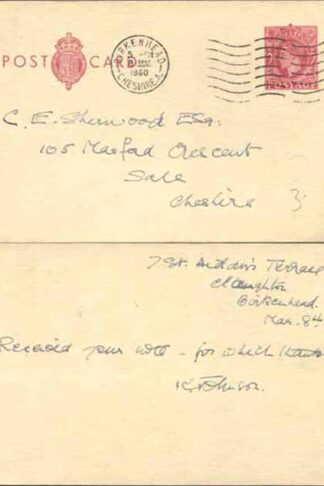 POST CARD
BIRKENHEAD
5
MAR
1960
CHESHIRE.A
POSTAGE
C. E. Sherwood Esq:
105 Masford Crescent
Sale
Cheshire
7 St. Aidan's Terrace
Claughton
Birkenhead.
Mar. 8th
Received your note – for which thanks
K Johnson.